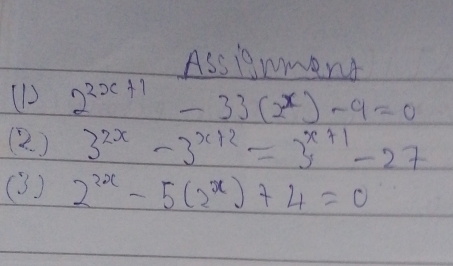 Assignment
(1) 2^{2x+1} - 33(2^x) - 9 = 0
(2) 3^{2x} - 3^{x+2} = 3^{x+1} - 27
(3) 2^{2x} - 5(2^x) + 4 = 0